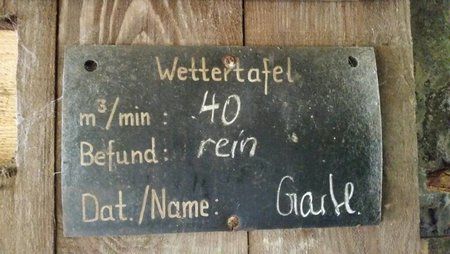 Wettertafel
m³/min : 40
Befund : rein
Dat./Name :